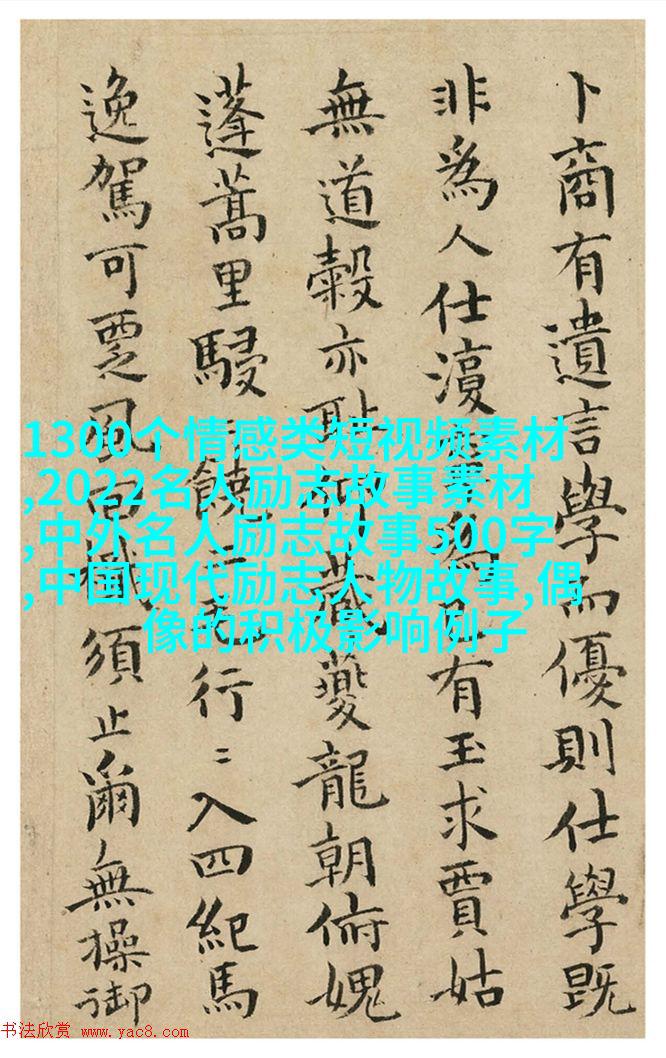 卜商有遺言學而優則仕學既
非爲人仕爲有玉求賈姑
無道穀亦恥藏夔龍朝俯媿
蓬蒿里駸〻行〻入四紀馬
逸駕可覂風須止爾無操御
1300个情感类短视频素材
,2022名人励志故事素材
,中外名人励志故事500字
,中国现代励志人物故事,偶
像的积极影响例子
书法欣赏 www.yac8.com